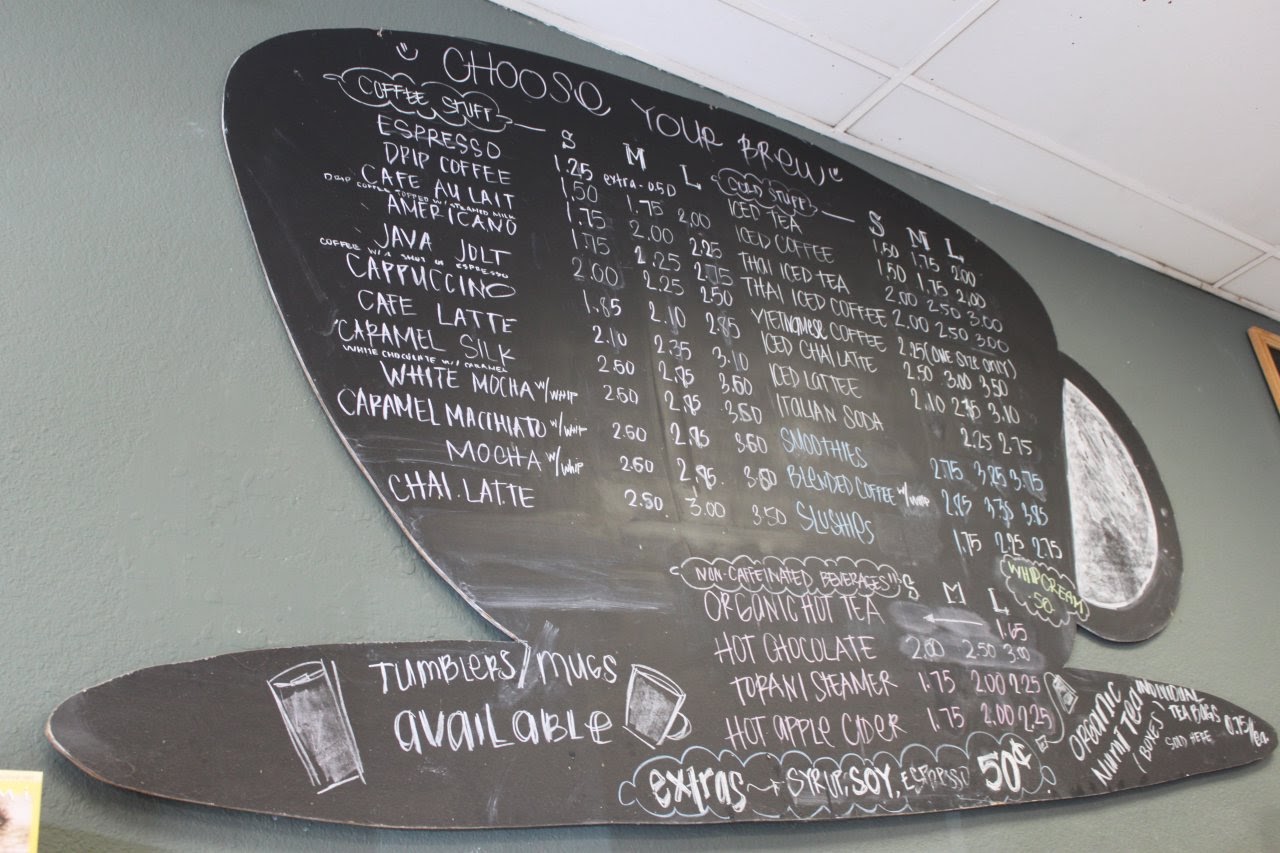 CHOOSE YOUR BREW
COFFEE STUFF — S M L
ESPRESSO 1.25 extra-0.50
DRIP COFFEE 1.50 1.75 2.00
CAFE AU LAIT 1.75 2.00 2.25
DRIP COFFEE TOPPED W/ STEAMED MILK
AMERICANO 1.75 2.25 2.75
JAVA JOLT 2.00 2.25 2.50
COFFEE W/ A SHOT OF ESPRESSO
CAPPUCCINO 1.85 2.10 2.85
CAFE LATTE 2.10 2.35 3.10
CARAMEL SILK 2.50 2.85 3.50
WHITE CHOCOLATE W/ CARAMEL
WHITE MOCHA w/WHIP 2.50 2.85 3.50
CARAMEL MACCHIATO w/WHIP 2.50 2.85 3.50
MOCHA w/WHIP 2.50 2.85 3.50
CHAI LATTE 2.50 3.00 3.50
COLD STUFF — S M L
ICED TEA 1.50 1.75 2.00
ICED COFFEE 1.50 1.75 2.00
THAI ICED TEA 2.00 2.50 3.00
THAI ICED COFFEE 2.00 2.50 3.00
VIETNAMESE COFFEE 2.25 (ONE SIZE ONLY)
ICED CHAI LATTE 2.50 3.00 3.50
ICED LATTEE 2.10 2.35 3.10
ITALIAN SODA 2.25 2.75
SMOOTHIES 2.75 3.25 3.75
BLENDED COFFEE w/WHIP 2.85 3.35 3.85
SLUSHIES 1.75 2.25 2.75
WHIP CREAM
.50
NON-CAFFEINATED BEVERAGES!! S M L
ORGANIC HOT TEA ← 1.65
HOT CHOCOLATE 2.00 2.50 3.00
TORANI STEAMER 1.75 2.00 2.25
HOT APPLE CIDER 1.75 2.00 2.25
extras → SYRUP, SOY, ESPRESSO 50¢
TUMBLERS/MUGS
AVAILABLE
ORGANIC
Numi Tea
(BOXES)
INDIVIDUAL
TEA BAGS
SOLD HERE 0.75/ea